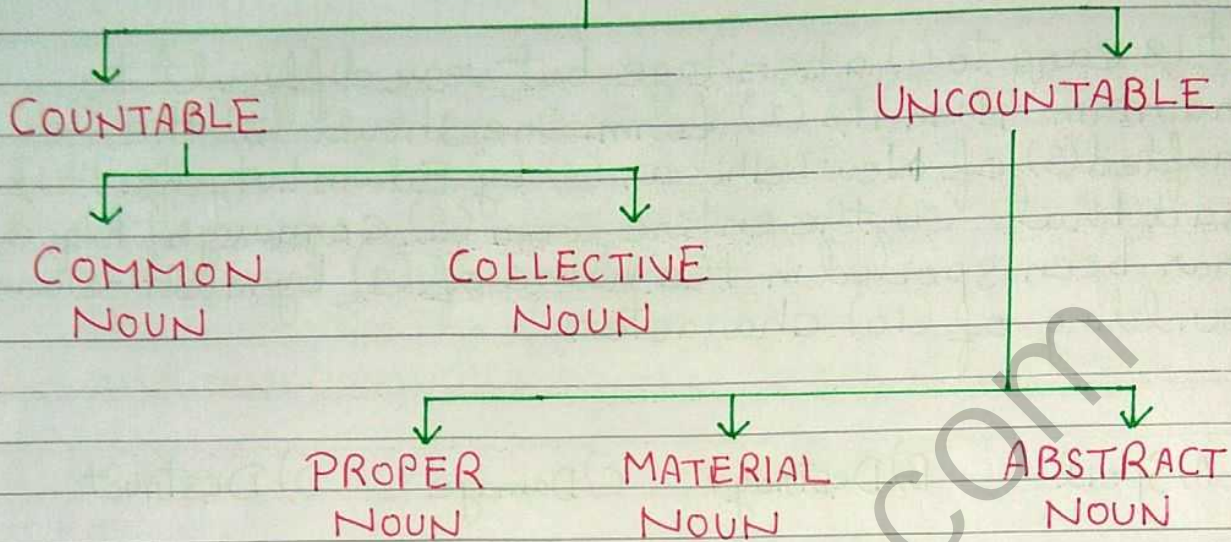 COUNTABLE
UNCOUNTABLE
COMMON
NOUN
COLLECTIVE
NOUN
PROPER
NOUN
MATERIAL
NOUN
ABSTRACT
NOUN
com